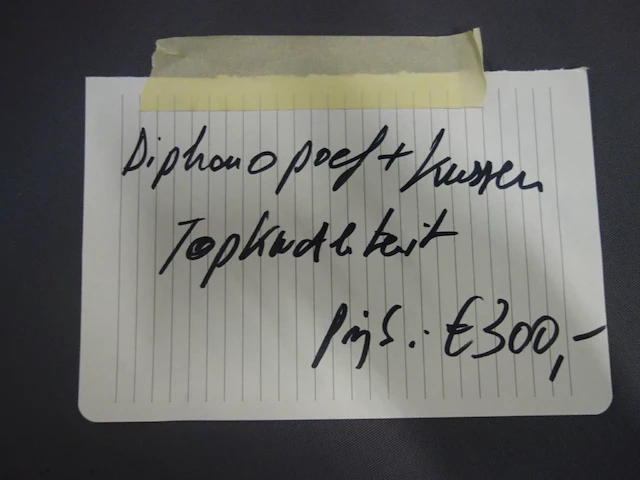 Diphano poef + kussen
Topkwaliteit
Prijs.: €300,-